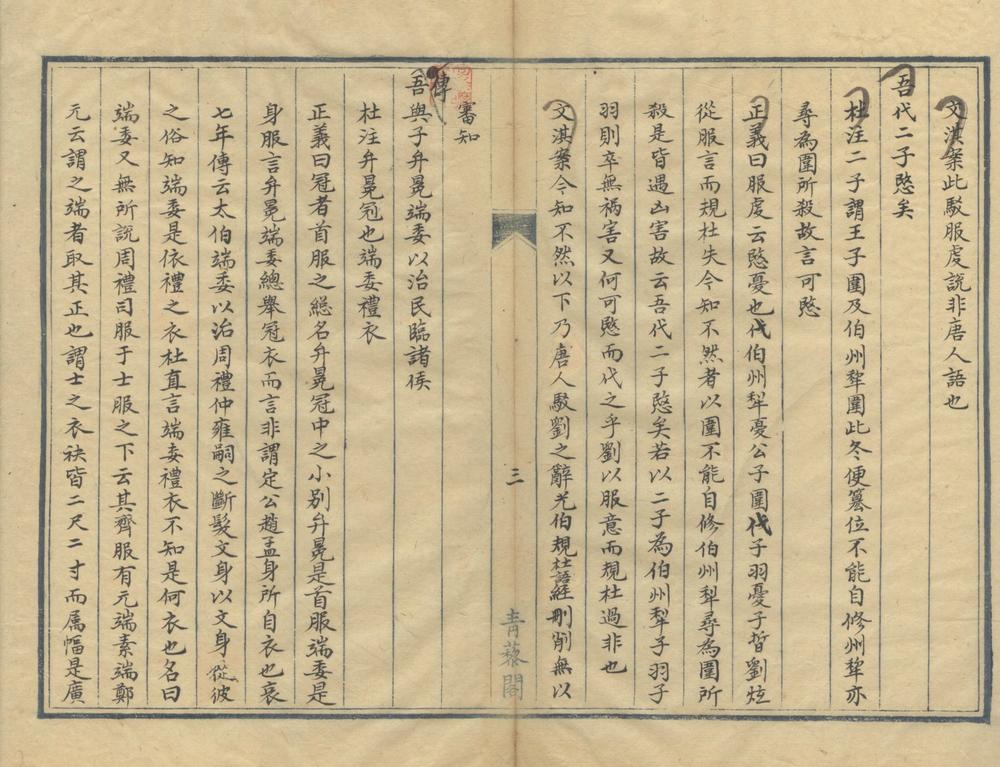 文淇案此駁服虔説非唐人語也
吾代二子愍矣
杜注二子謂王子圍及伯州犂圍此冬便簒位不能自修州犂亦
尋為圍所殺故言可愍
正義曰服虔云愍憂也代伯州犁憂公子圍代子羽憂子晳劉炫
從服言而規杜失今知不然者以圍不能自修伯州犁尋為圍所
殺是皆遇凶害故云吾代二子愍矣若以二子為伯州犁子羽子
羽則卒無禍害又何可愍而代之乎劉以服意而規杜過非也
文淇案今知不然以下乃唐人駁劉之辭光伯規杜語經刪削無以
三
青藜閣
審知
傳
吾與子弁冕端委以治民臨諸侯
杜注弁冕冠也端委禮衣
正義曰冠者首服之緫名弁冕冠中之小别弁冕是首服端委是
身服言弁冕端委總舉冠衣而言非謂定公趙孟身所自衣也哀
七年傳云太伯端委以治周禮仲雍嗣之斷髮文身以文身從彼
之俗知端委是依禮之衣杜直言端委禮衣不知是何衣也名曰
端委又無所説周禮司服于士服之下云其齊服有元端素端鄭
元云謂之端者取其正也謂士之衣袂皆二尺二寸而属幅是廣